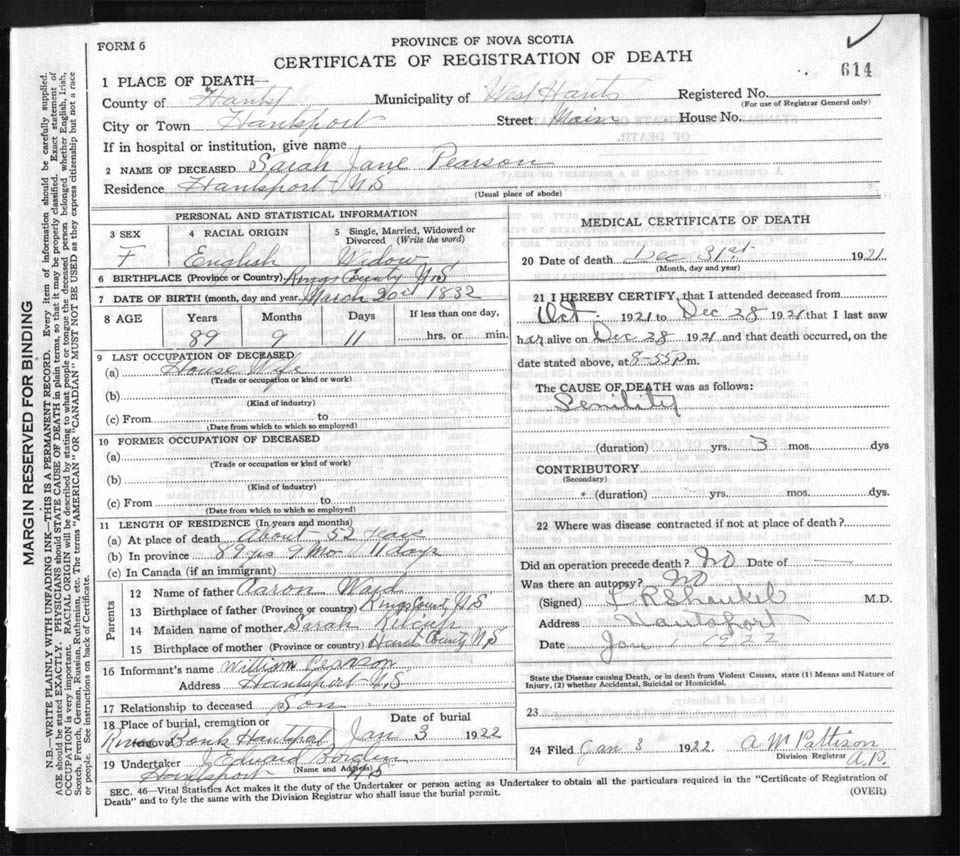 FORM 6
PROVINCE OF NOVA SCOTIA
CERTIFICATE OF REGISTRATION OF DEATH
614
1 PLACE OF DEATH—
County of Hants Municipality of West Hants Registered No.
(For use of Registrar General only)
City or Town Hantsport Street Main House No.
If in hospital or institution, give name
2 NAME OF DECEASED Sarah Jane Pearson
Residence Hantsport N S
(Usual place of abode)
PERSONAL AND STATISTICAL INFORMATION
3 SEX 4 RACIAL ORIGIN 5 Single, Married, Widowed or Divorced (Write the word)
F English Widow
6 BIRTHPLACE (Province or Country) Kings County N S
7 DATE OF BIRTH (month, day and year) March 20 1832
8 AGE Years Months Days If less than one day,
89 9 11 hrs. or min.
9 LAST OCCUPATION OF DECEASED
(a) House Wife
(Trade or occupation or kind or work)
(b)
(Kind of industry)
(c) From to
(Date from which to which so employed)
10 FORMER OCCUPATION OF DECEASED
(a)
(Trade or occupation or kind of work)
(b)
(Kind of industry)
(c) From to
(Date from which to which so employed)
11 LENGTH OF RESIDENCE (In years and months)
(a) At place of death About 52 years
(b) In province 89 yrs 9 Mo 11 days
(c) In Canada (if an immigrant)
Parents
12 Name of father Aaron Ward
13 Birthplace of father (Province or country) Kings Count N S
14 Maiden name of mother Sarah
15 Birthplace of mother (Province or country) Hants County N S
16 Informant's name William Pearson
Address Hantsport N S
17 Relationship to deceased Son
18 Place of burial, cremation or removal Date of burial
Bank Hantsport Jan 3 1922
19 Undertaker J Edward Borden
(Name and Address)
Hantsport N S
MEDICAL CERTIFICATE OF DEATH
20 Date of death Dec 31st 1921
(Month, day and year)
21 I HEREBY CERTIFY, that I attended deceased from
Oct 1921 to Dec 28 1921 that I last saw
her alive on Dec 28 1921 and that death occurred, on the
date stated above, at 8-55 P m.
The CAUSE OF DEATH was as follows:
Senility
(duration) yrs. 3 mos. dys
CONTRIBUTORY
(Secondary)
(duration) yrs. mos. dys.
22 Where was disease contracted if not at place of death?
Did an operation precede death? No Date of —
Was there an autopsy? No
(Signed) M.D.
Address Hantsport
Date Jan 1 1922
State the Disease causing Death, or in death from Violent Causes, state (1) Means and Nature of
Injury, (2) whether Accidental, Suicidal or Homicidal.
23
24 Filed Jan 3 1922. A M Pattison
Division Registrar
SEC. 46—Vital Statistics Act makes it the duty of the Undertaker or person acting as Undertaker to obtain all the particulars required in the "Certificate of Registration of
Death" and to fyle the same with the Division Registrar who shall issue the burial permit.
(OVER)
MARGIN RESERVED FOR BINDING
N.B.—WRITE PLAINLY WITH UNFADING INK—THIS IS A PERMANENT RECORD. Every item of information should be carefully supplied.
AGE should be stated EXACTLY. PHYSICIANS should STATE CAUSE OF DEATH in plain terms, so that it may be properly classified. Exact statement of
OCCUPATION is very important. RACIAL ORIGIN will be described by stating to what people or tongue the deceased person belonged whether English, Irish,
Scotch, French, German, Russian, Ruthenian, etc. The terms "AMERICAN" OR "CANADIAN" MUST NOT BE USED as they express citizenship but not a race
or people. See instructions on back of Certificate.